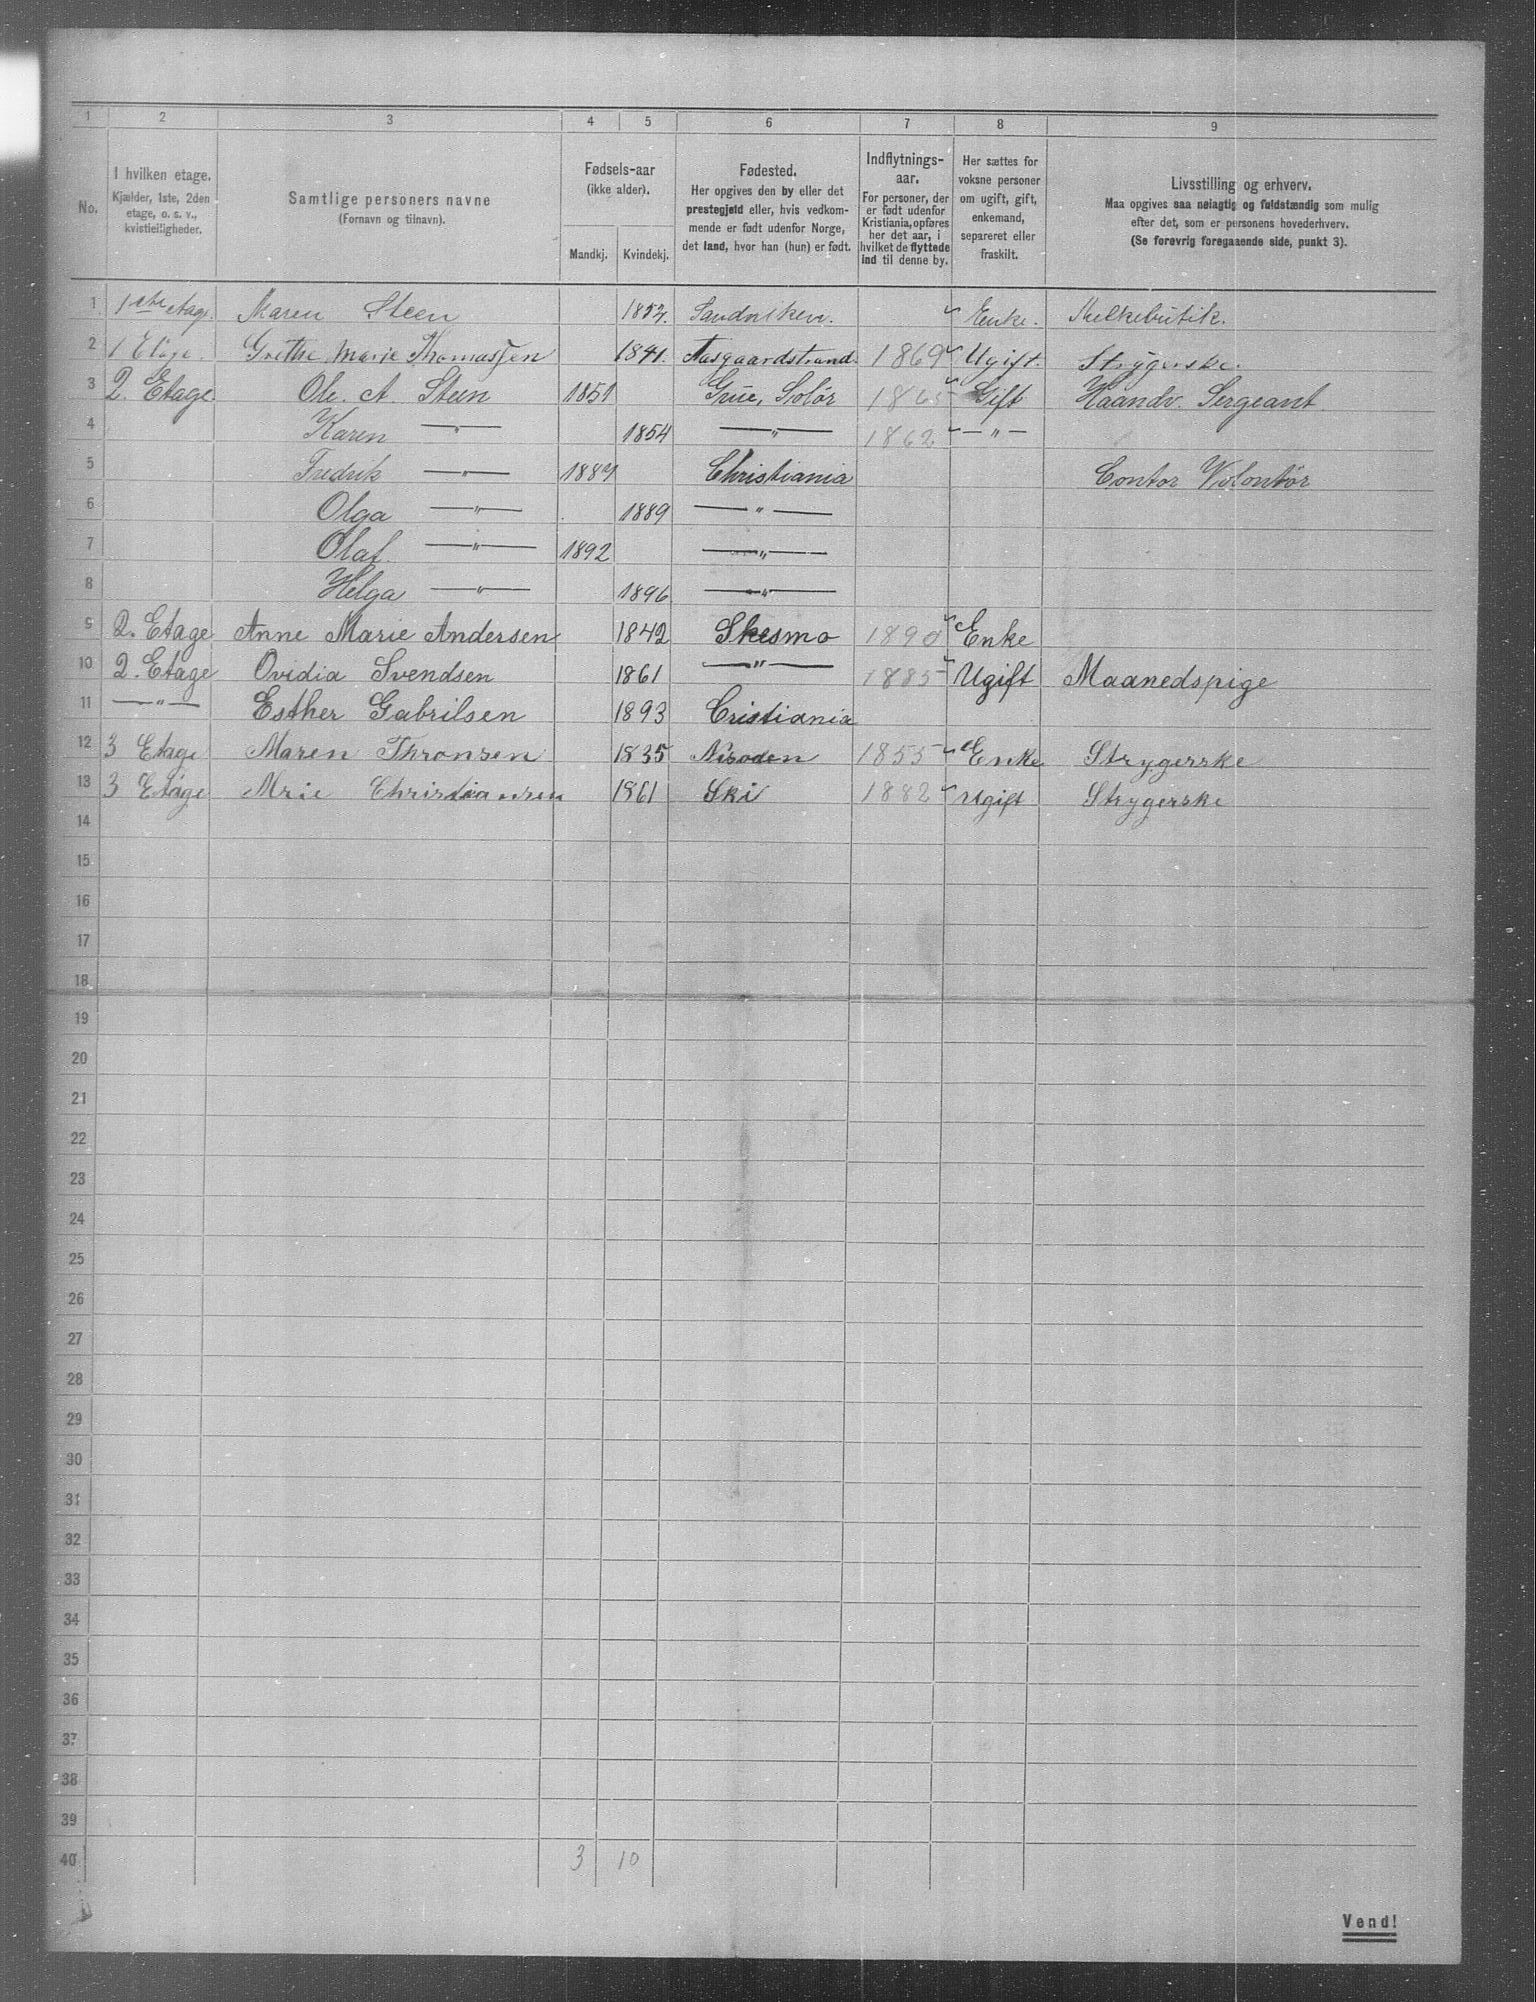 1 2 3 4 5 6 7 8 9
No.
I hvilken etage.
Kjælder, 1ste, 2den
etage, o. s. v.,
kvistleiligheder.
Samtlige personers navne
(Fornavn og tilnavn).
Fødsels-aar
(ikke alder).
Mandkj. Kvindekj.
Fødested.
Her opgives den by eller det
prestegjeld eller, hvis vedkom-
mende er født udenfor Norge,
det land, hvor han (hun) er født.
Indflytnings-
aar.
For personer, der
er født udenfor
Kristiania, opføres
her det aar, i
hvilket de flyttede
ind til denne by.
Her sættes for
voksne personer
om ugift, gift,
enkemand,
separeret eller
fraskilt.
Livsstilling og erhverv.
Maa opgives saa nøiagtig og fuldstændig som mulig
efter det, som er personens hovederhverv.
(Se forøvrig foregaaende side, punkt 3).
1 1ste etag. Maren Steen Sandviken. Enke. Melkebutik.
2 1 Etage. Grethe Marie Thomassen 1841. Aasgaardstrand. 1869 Ugift. Strygerske.
3 2. Etage. Ole. A. Steen 1851 Grue, Solør Gift Haandv. Sergeant
4 Karen —"— 1854 —"— 1862 —"—
5 Fredrik —"— 1887 Christiania Contor Volontør
6 Olga —"— 1889 —"—
7 Olaf. —"— 1892 —"—
8 Helga —"— 1896 —"—
9 2. Etage Anne Marie Andersen 1842 Skesmo 1890 Enke
10 2. Etage Ovidia Svendsen 1861 —"— 1885 Ugift Maanedspige
11 —"— Esther Gabrilsen 1893 Cristiania
12 3 Etage Maren Thronsen 1835 Nesodden 1855 Enke Strygerske
13 3 Etage Mrie Christiansen 1861 Ski 1882 Ugift Strygerske
14
15
16
17
18
19
20
21
22
23
24
25
26
27
28
29
30
31
32
33
34
35
36
37
38
39
40 3 10
Vend!